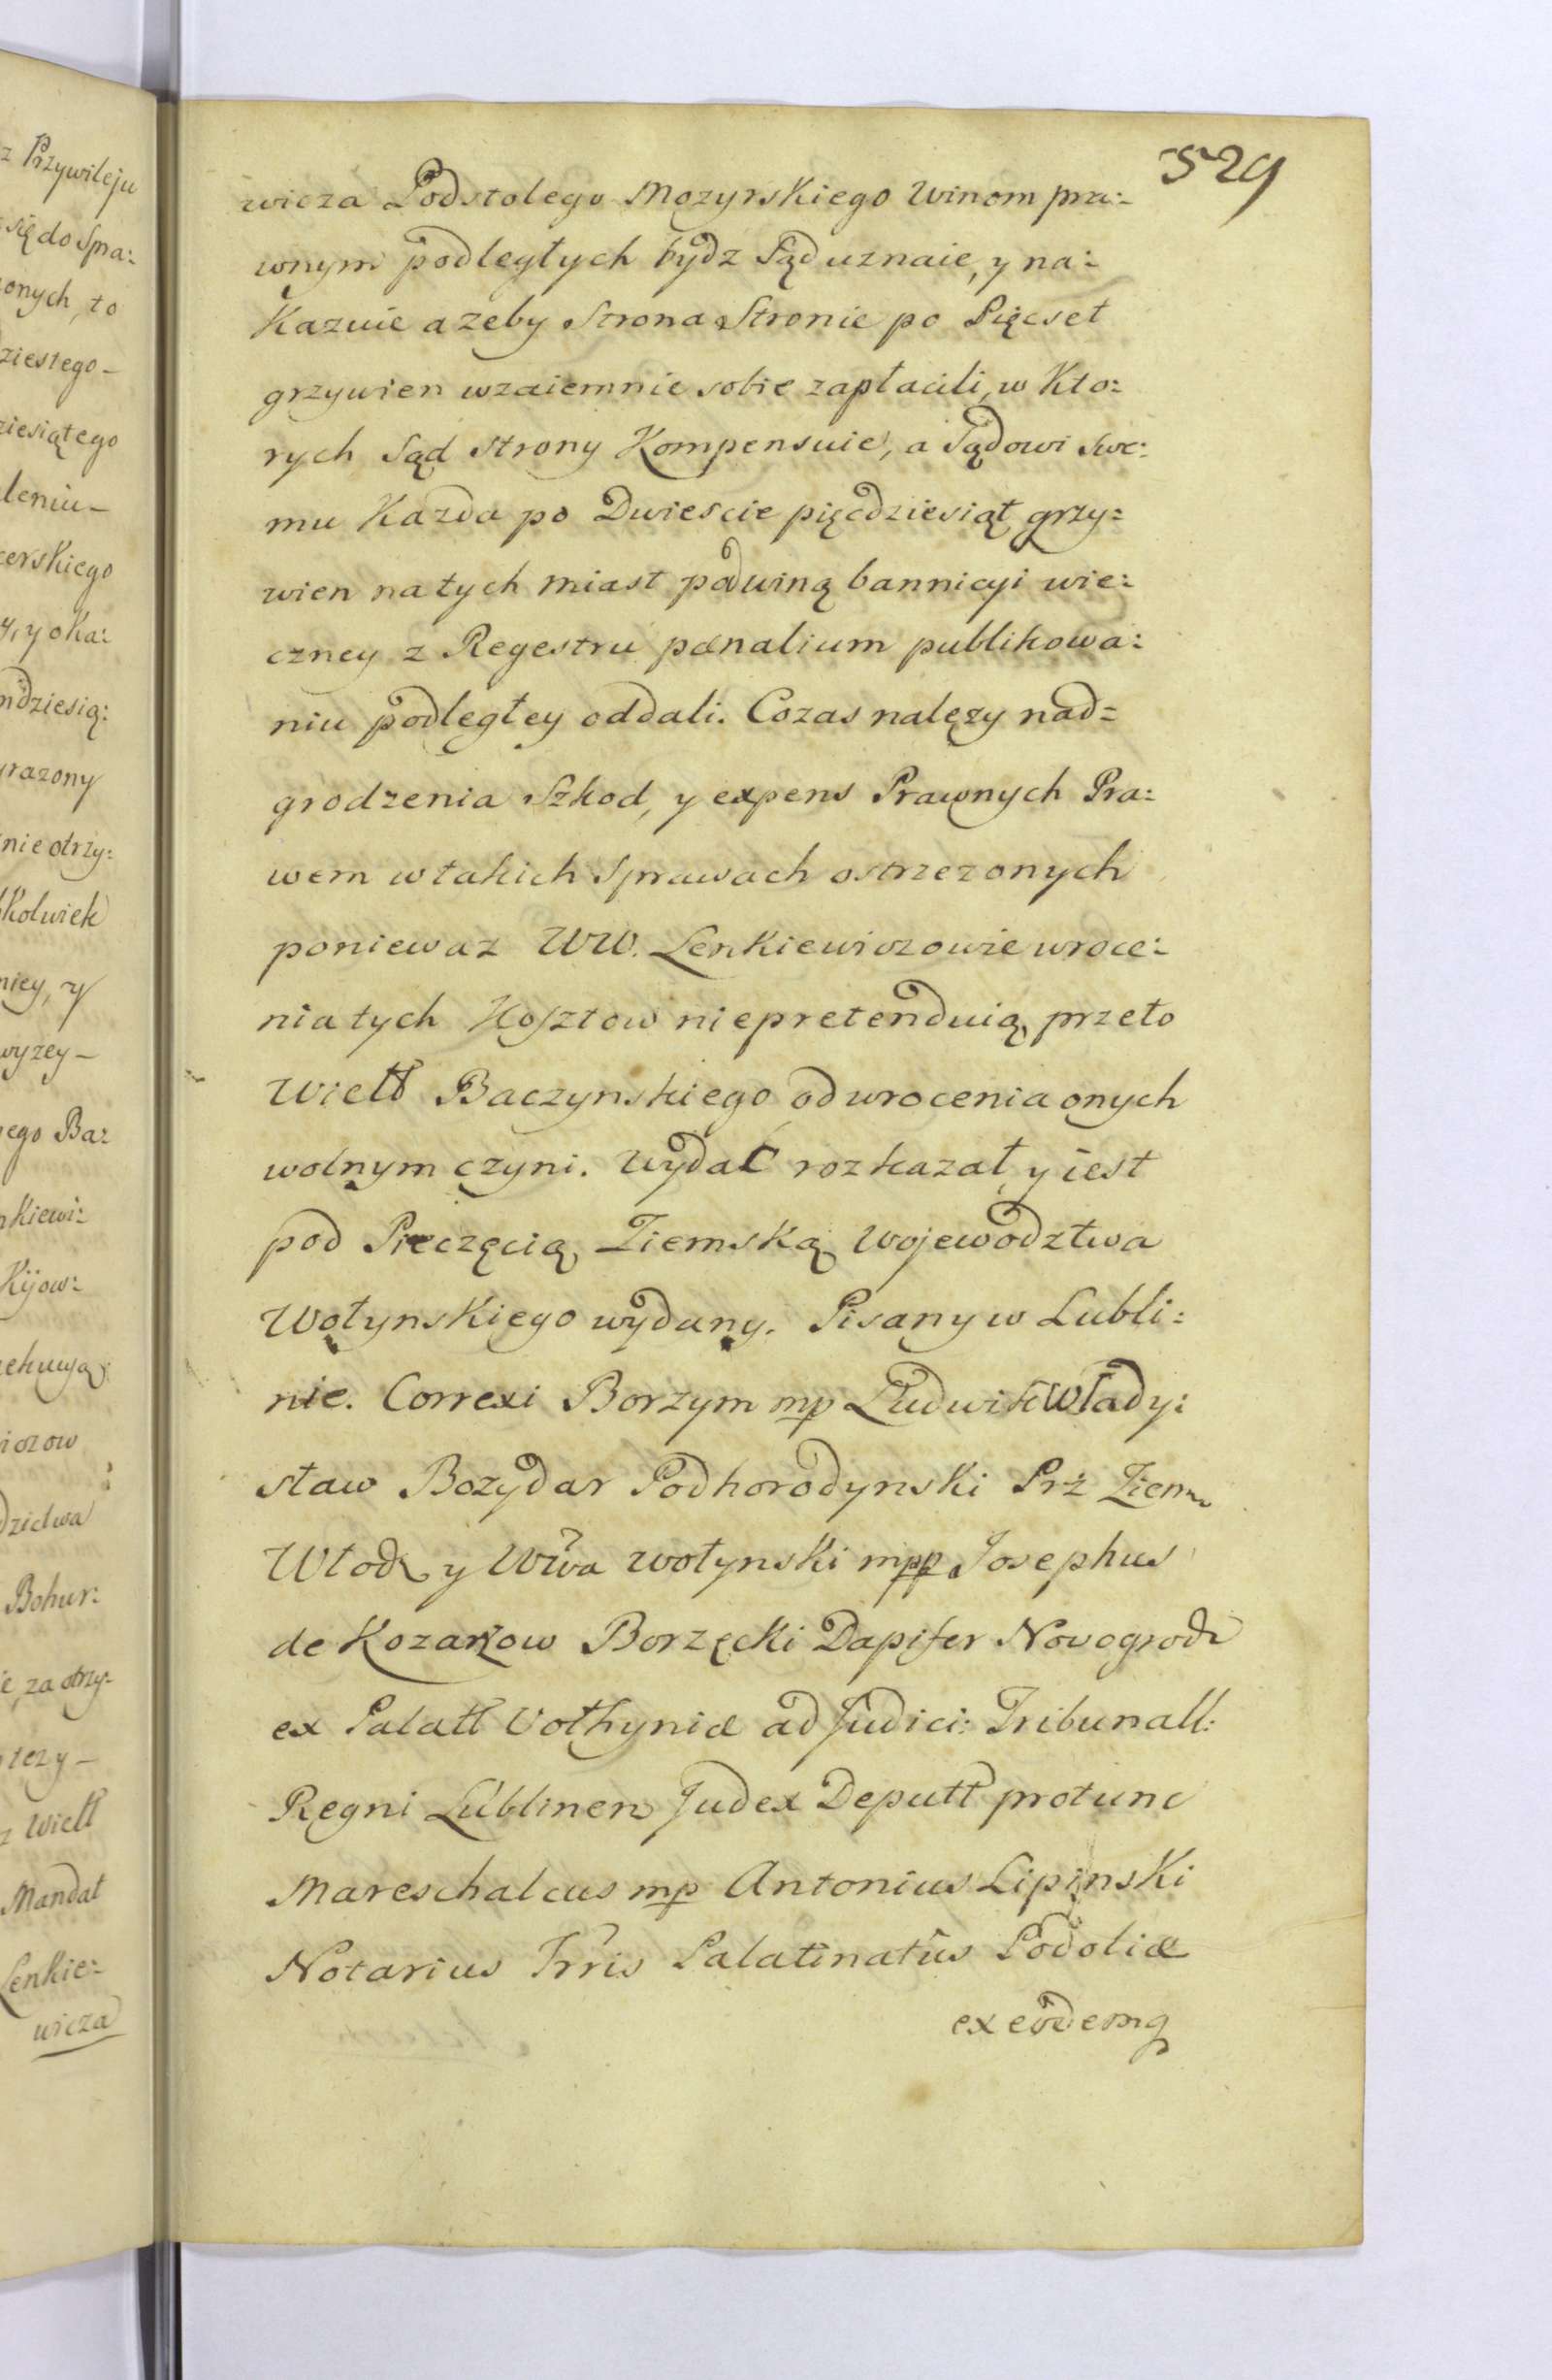 529
wicza Podstolego Mozyrskiego Winom pra:
wnym podległych bydz Sąd uznaie, y na:
kazuie azeby Strona Stronie po Pięcset
grzywien wzaiemnie sobie zapłacili, w Kto:
rych Sąd strony Kompensuie, a Sądowi swe:
mu Kazda po Dwiescie pięcdziesiąt grzy:
wien natych miast pod winą bannicyi wie:
czney z Regestru pænalium publikowa:
niu podległey oddali. Cozas nalęzy nad=
grodzenia Szkod, y expens Prawnych Pra:
wem w takich Sprawach ostrzezonych
poniewaz WW. Lenkiewiczowie wroce:
nia tych Kosztow niepretenduią, przeto
Wiell Baczynskiego od wrocenia onych
wolnym czyni. Wydać rozkazał, y iest
pod Pieczęcią Ziemską Wojewodztwa
Wołynskiego wydany. Pisany w Lubli:
nie. Correxi Borzym mp Ludwik Włady:
sław Bozydar Podhorodynski Prż Ziem
Włodz y Wwa Wołynski mpp Josephus
de Kozarzow Borzęcki Dapifer Novogrod
ex Palatt Volhyniæ ad Judici: Tribunall:
Regni Lublinen Judex Deputt protunc
Mareschalcus mp Antonius Lipinski
Notarius Trris Palatinatûs Podoliæ
ex eodemq
z Przywileju
się do Spra:
onych, to
ziestego –
ziesiątego
leniu –
cerskiego
y, y oka:
mdziesią:
yrazony
nie otrzy:
kolwiek
niey, y
wyzey –
ego Ba:
nkiewi:
Kijow:
ekuyą
iczow
dzictwa
Bohur:
ie, za otrzy:
tezy –
z Wiell
Mandat
Lenkie:
wicza